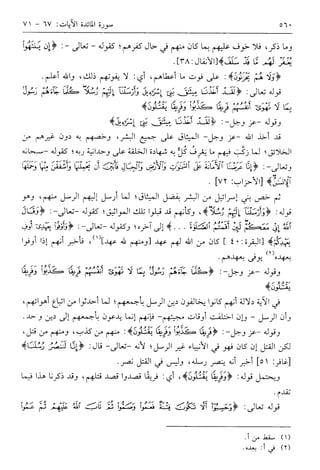 ٥٦٠ سورة المائدة الآيات: ٦٧ - ٧١
وما ذكر، فلا خوف عليهم بما كان منهم في حال كفرهم؛ كقوله - تعالى -: ﴿إِن يَنتَهُوا
يُغْفَرْ لَهُم مَّا قَدْ سَلَفَ﴾ [الأنفال: ٣٨].
﴿وَلَا هُمْ يَحْزَنُونَ﴾: على فوت ما أعطاهم، أي: لا يفوتهم ذلك، والله أعلم.
قوله تعالى: ﴿لَقَدْ أَخَذْنَا مِيثَاقَ بَنِي إِسْرَائِيلَ وَأَرْسَلْنَا إِلَيْهِمْ رُسُلًا كُلَّمَا جَاءَهُمْ رَسُولٌ
بِمَا لَا تَهْوَى أَنفُسُهُمْ فَرِيقًا كَذَّبُوا وَفَرِيقًا يَقْتُلُونَ﴾
وقوله - عز وجل -: ﴿لَقَدْ أَخَذْنَا مِيثَاقَ بَنِي إِسْرَائِيلَ﴾
قد أخذ الله - عز وجل - الميثاق على جميع البشر، وخصهم به دون غيرهم من
الخلائق؛ لما ركَّب فيهم ما يَعْرِف كُلٌّ به شهادة الخلقة على وحدانية ربه؛ كقوله - سبحانه
وتعالى -: ﴿إِنَّا عَرَضْنَا الْأَمَانَةَ عَلَى السَّمَوَاتِ وَالْأَرْضِ وَالْجِبَالِ فَأَبَيْنَ أَن يَحْمِلْنَهَا وَأَشْفَقْنَ مِنْهَا وَحَمَلَهَا
الْإِنسَانُ﴾ [الأحزاب: ٧٢].
ثم خص بني إسرائيل من البشر بفضل الميثاق؛ لما أرسل إليهم الرسل منهم، وهو
قوله: ﴿وَأَرْسَلْنَا إِلَيْهِمْ رُسُلًا﴾، وكأنهم قد قبلوا تلك المواثيق؛ كقوله - تعالى -: ﴿وَقَالَ
اللَّهُ إِنِّي مَعَكُمْ لَئِنْ أَقَمْتُمُ الصَّلَاةَ ...﴾ إلى آخره؛ وكقوله - تعالى -: ﴿وَأَوْفُوا بِعَهْدِي أُوفِ
بِعَهْدِكُمْ﴾ [البقرة: ٤٠] كان من الله لهم عهد [ومنهم لله عهد](١)، فأخبر أنهم إذا أوفوا
بعهده(٢) يوفى بعهدهم.
وقوله - عز وجل -: ﴿كُلَّمَا جَاءَهُمْ رَسُولٌ بِمَا لَا تَهْوَى أَنفُسُهُمْ فَرِيقًا كَذَّبُوا وَفَرِيقًا
يَقْتُلُونَ﴾
في الآية دلالة أنهم كانوا يخالفون دين الرسل بأجمعهم؛ لما أحدثوا من اتباع أهوائهم،
وأن الرسل - وإن اختلفت أوقات مجيئهم - فإنهم إنما يدعون بأجمعهم إلى دين واحد.
وقوله - عز وجل -: ﴿فَرِيقًا كَذَّبُوا وَفَرِيقًا يَقْتُلُونَ﴾: منهم من كذب، ومنهم من قتل،
لكن القتل إن كان فهو في الأنبياء غير الرسل؛ لأنه - تعالى - قال: ﴿إِنَّا لَنَنصُرُ رُسُلَنَا﴾
[غافر: ٥١] أخبر أنه ينصر رسله، وليس في القتل نصر.
ويحتمل قوله: ﴿وَفَرِيقًا يَقْتُلُونَ﴾، أي: فريقًا قصدوا قصد قتلهم، وقد ذكرنا هذا فيما
تقدم.
قوله تعالى: ﴿وَحَسِبُوا أَلَّا تَكُونَ فِتْنَةٌ فَعَمُوا وَصَمُّوا ثُمَّ تَابَ اللَّهُ عَلَيْهِمْ ثُمَّ عَمُوا
(١) سقط من أ.
(٢) في أ: بعده.